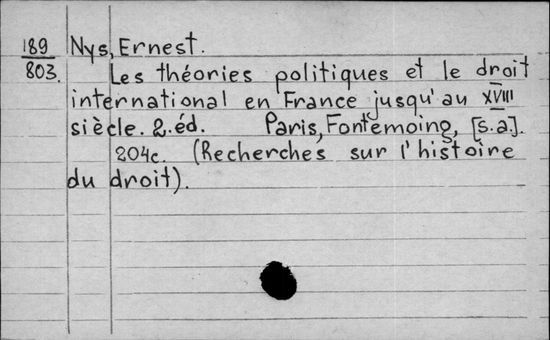 189 Nys, Ernest.
803. Les théories politiques et le droit
international en France jusqu'au XVIII
siècle. 2.éd. Paris, Fontemoing, [s.a].
204c. (Recherches sur l'histoire
du droit).